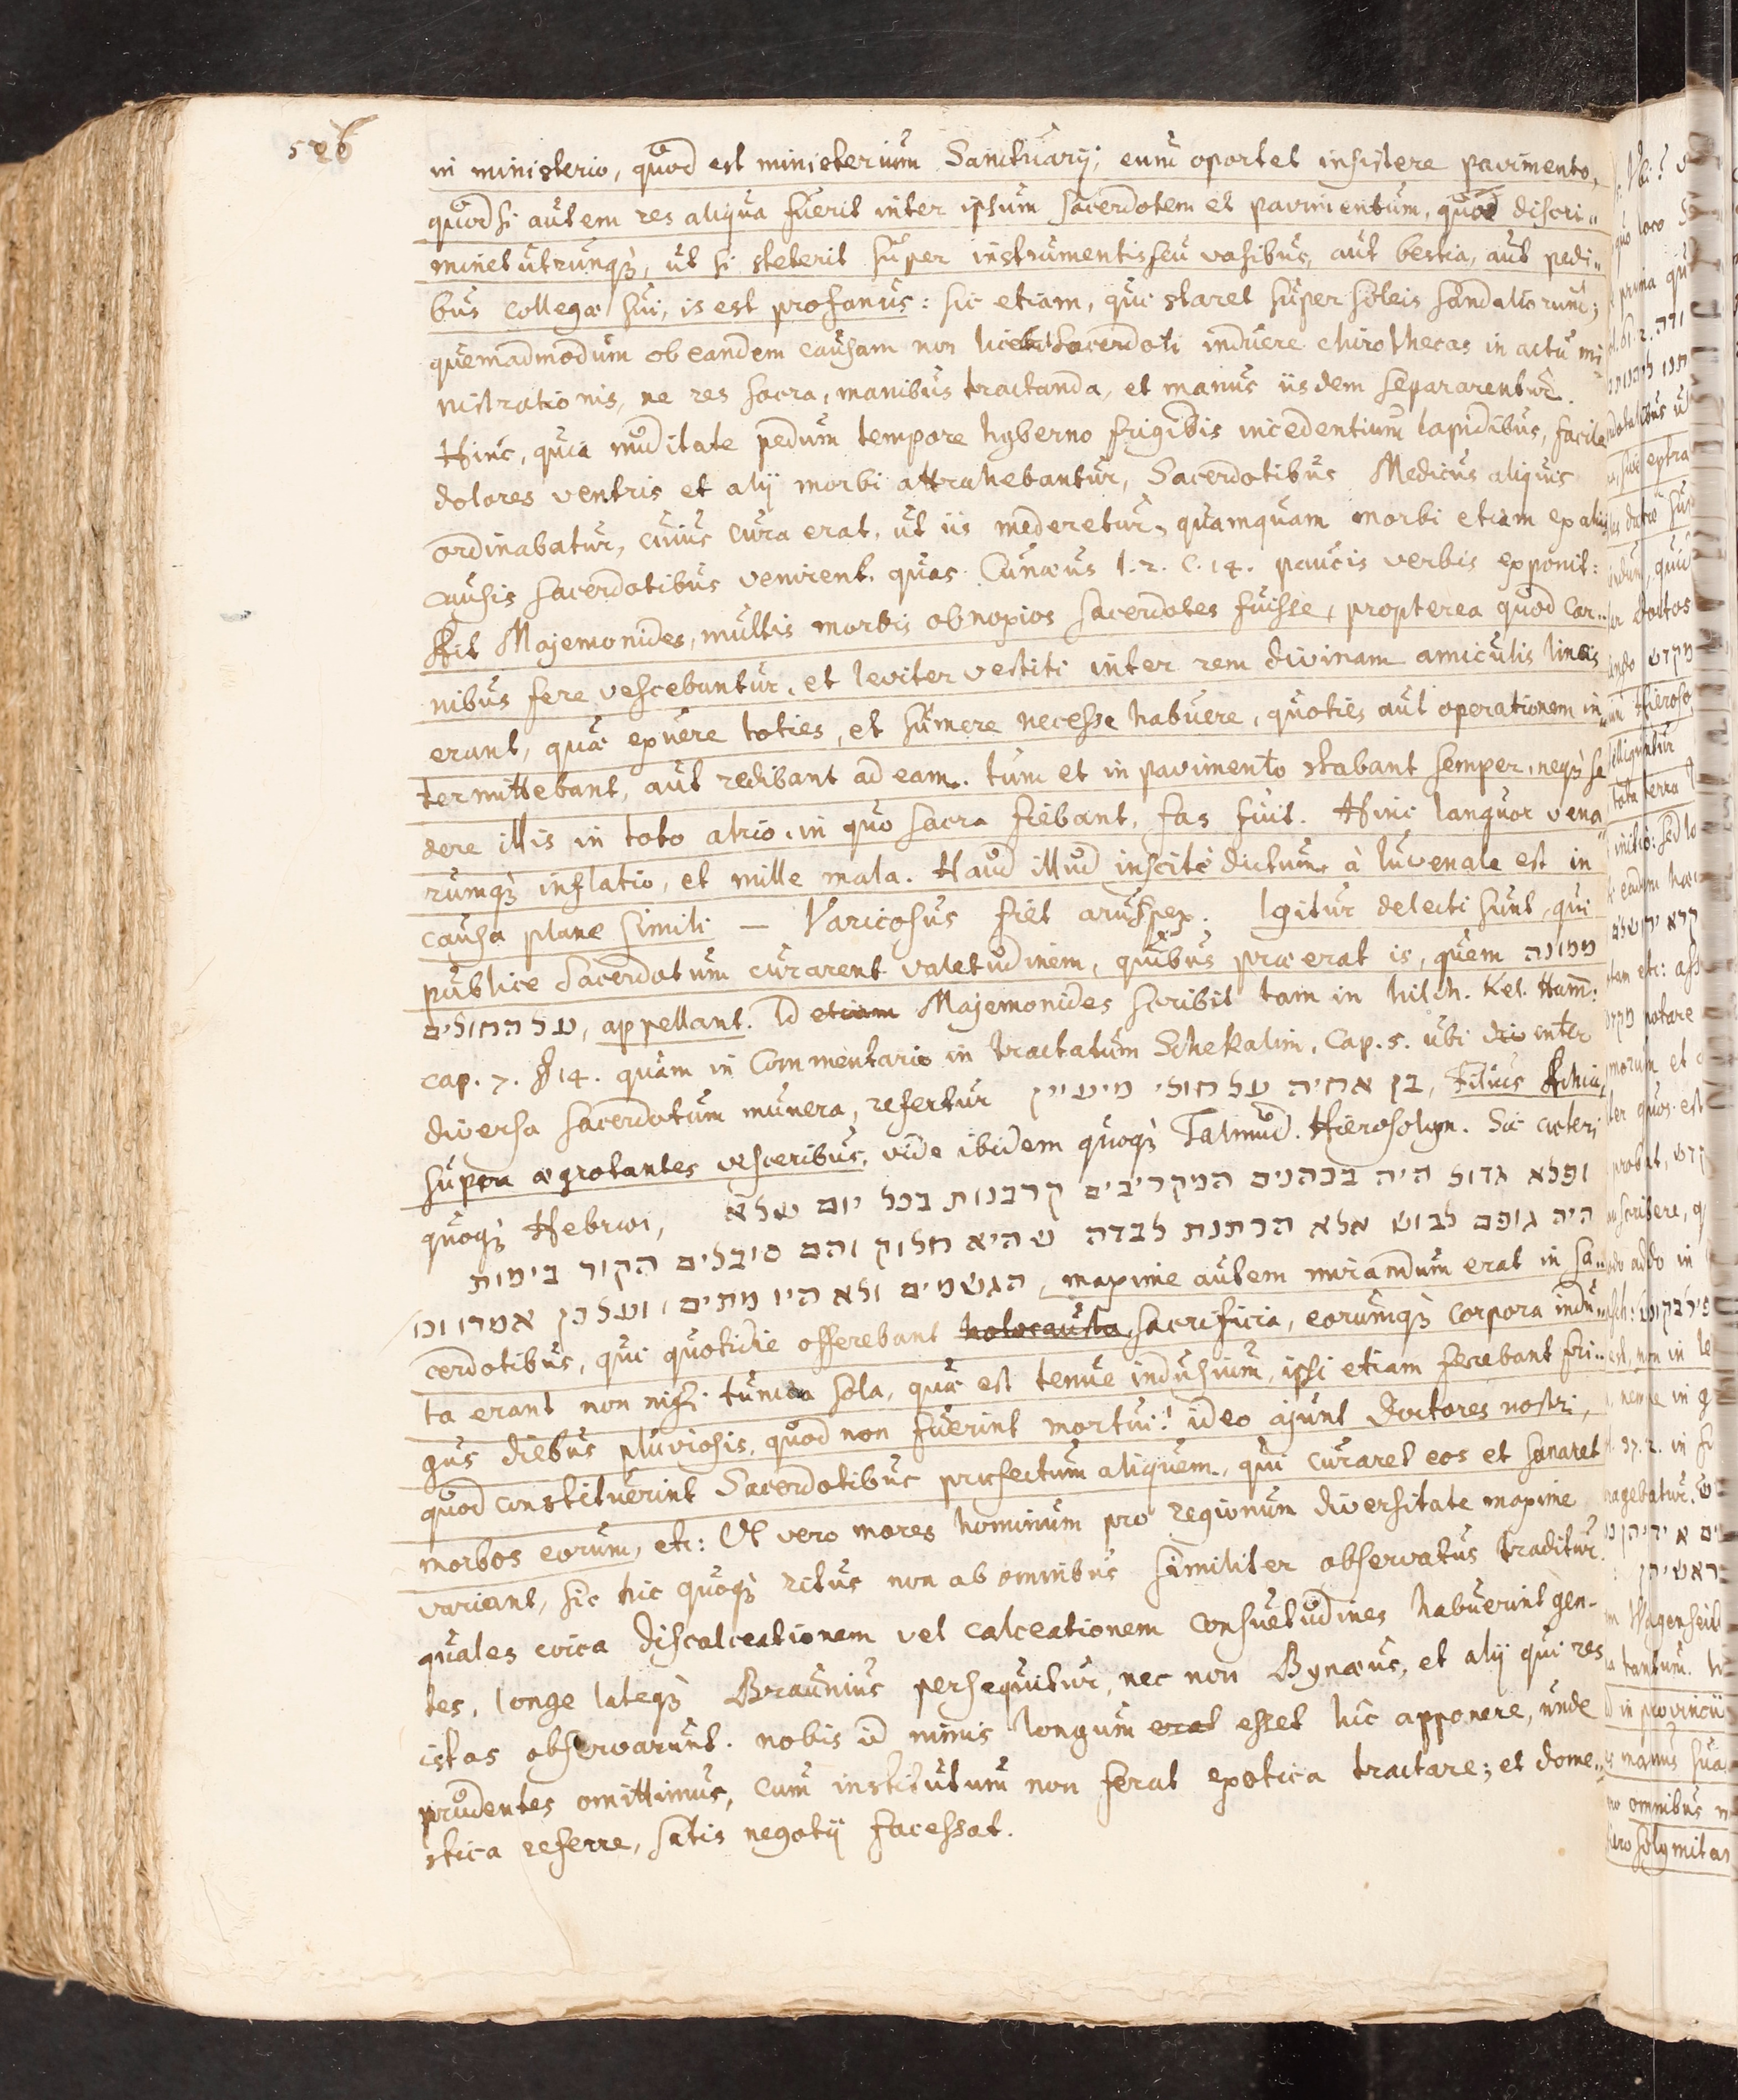 526
in ministerio, quod est ministerium Sanctuarij; eum oportet insistere pavimento,
quod si autem res aliqua fuerit inter ipsum sacerdotem et pavimentum, quod discri-
minet utrunq;, ut si steterit super instrumentis seu vasibus, aut bestia, aut pedi-
bus collegæ sui, is est profanus: sic etiam, qui staret super soleis sandaliorum;
quemadmodum ob eandem causam non licebit Sacerdoti induere chirothecas in actu mi
nistrationis, ne res sacra, manibus tractanda, et manus iisdem separarentur.
Hinc, quia nuditate pedum tempore hyberno frigidis incedentium lapidibus, facile
dolores ventris et alij morbi attrahebantur, Sacerdotibus Medicus aliquis
ordinabatur, cuius cura erat, ut iis mederetur, quamquam morbi etiam ex alijs
causis sacerdotibus venirent, quas Cunæus l. 2. c. 14. paucis verbis exponit:
Ait Majemonides, multis morbis obnoxios sacerdotes fuisse, propterea quod car-
nibus fere vescebantur, et leviter vestiti inter rem divinam amiculis lineis
erant, quæ exuere toties, et sumere necesse habuere, quoties aut operationem in-
termittebant, aut redibant ad eam. tum et in pavimento stabant semper, neq; se
dere illis in toto atrio, in quo sacra fiebant, fas fuit. Hinc languor vena
rumq; inflatio, et mille mala. Haud illud inscitè dictum à Iuvenale est in
causa plane simili — Varicosus fiet aruspex. Igitur delecti sunt, qui
publice Sacerdotum curarent valetudinem, quibus præerat is, quem ממונה
על החולים, appellant. Id etiam Majemonides scribit tam in hilch. Kel. Ham:
cap. 7. § 14. quam in Commentario in tractatum Schekalim, Cap. 5. ubi inter
diversa sacerdotum munera, refertur בן אחיה על חולי מיעיין, Filius Achiæ,
supra ægrotantes visceribus, vide ibidem quoq; Talmud. Hierosolym. Sic cæteri
quoq; Hebræi, ופלא גדול היה בכהנים המקריבים קרבנות בכל יום שלא
היה גופם לבוש אלא הכתנת לבדה שהיא חלוק והם סובלים הקור בימות
הגשמים ולא היו מתים, ועל כן אמרו וכו, maxime autem mirandum erat in sa-
cerdotibus, qui quotidie offerebant holocausta, sacrificia, eorumq; corpora indu
ta erant non nisi tunica sola, quæ est tenue indusium, ipsi etiam ferebant fri-
gus diebus pluviosis, quod non fuerint mortui! ideo ajunt Doctores nostri,
quod constituerint Sacerdotibus præfectum aliquem, qui curaret eos et sanaret
morbos eorum, etc: Ut vero mores hominum pro regionum diversitate maxime
variant, sic hic quoq; ritus non ab omnibus similiter observatus traditur.
quales circa discalceationem vel calceationem consuetudines habuerint gen-
tes, longe lateq; Braunius persequitur, nec non Bynæus, et alij qui res
istas observarunt. nobis id nimis longum erat esset hîc apponere, unde
prudentes omittimus, cum institutum non ferat exotica tractare; et dome-
stica referre, satis negotij facessat.